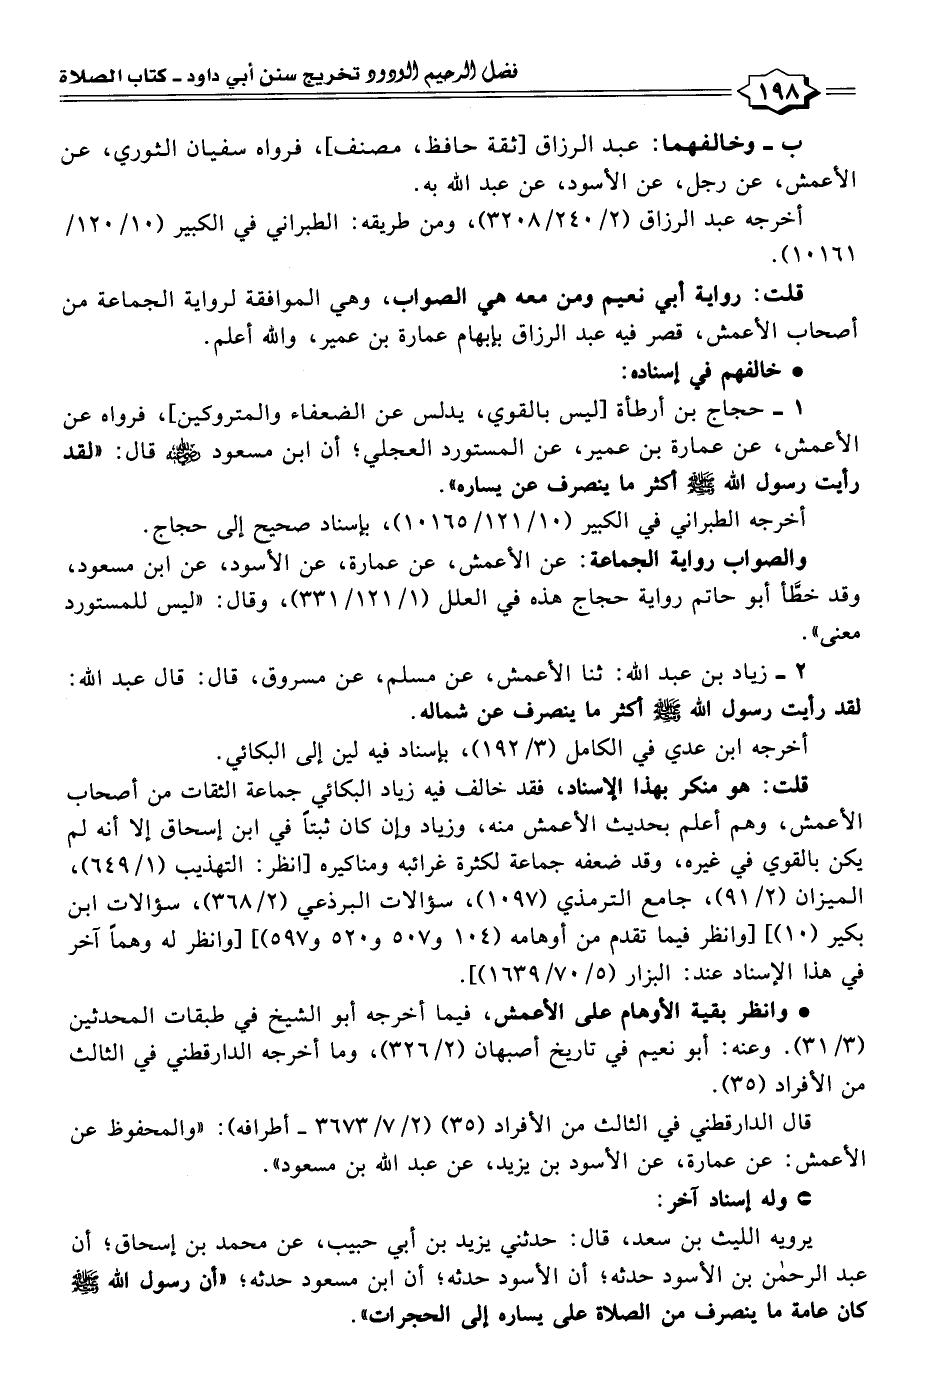 فضل الرحيم الودود تخريج سنن أبي داود - كتاب الصلاة
١٩٨
ب - وخالفهما: عبد الرزاق [ثقة حافظ، مصنف]، فرواه سفيان الثوري، عن
الأعمش، عن رجل، عن الأسود، عن عبد الله به.
أخرجه عبد الرزاق (٣٢٠٨/٢٤٠/٢)، ومن طريقه: الطبراني في الكبير (١٠/ ١٢٠/
١٠١٦١).
قلت: رواية أبي نعيم ومن معه هي الصواب، وهي الموافقة لرواية الجماعة من
أصحاب الأعمش، قصر فيه عبد الرزاق بإبهام عمارة بن عمير، والله أعلم.
• خالفهم في إسناده:
١ - حجاج بن أرطأة [ليس بالقوي، يدلس عن الضعفاء والمتروكين]، فرواه عن
الأعمش، عن عمارة بن عمير، عن المستورد العجلي؛ أن ابن مسعود رضي الله عنه قال: «لقد
رأيت رسول الله ﷺ أكثر ما ينصرف عن يساره».
أخرجه الطبراني في الكبير (١٠١٦٥/١٢١/١٠)، بإسناد صحيح إلى حجاج.
والصواب رواية الجماعة: عن الأعمش، عن عمارة، عن الأسود، عن ابن مسعود،
وقد خطَّأ أبو حاتم رواية حجاج هذه في العلل (٣٣١/١٢١/١)، وقال: «ليس للمستورد
معنى».
٢ - زياد بن عبد الله: ثنا الأعمش، عن مسلم، عن مسروق، قال: قال عبد الله:
لقد رأيت رسول الله ﷺ أكثر ما ينصرف عن شماله.
أخرجه ابن عدي في الكامل (١٩٢/٣)، بإسناد فيه لين إلى البكائي.
قلت: هو منكر بهذا الإسناد، فقد خالف فيه زياد البكائي جماعة الثقات من أصحاب
الأعمش، وهم أعلم بحديث الأعمش منه، وزياد وإن كان ثبتاً في ابن إسحاق إلا أنه لم
يكن بالقوي في غيره، وقد ضعفه جماعة لكثرة غرائبه ومناكيره [انظر: التهذيب (٦٤٩/١)،
الميزان (٩١/٢)، جامع الترمذي (١٠٩٧)، سؤالات البرذعي (٣٦٨/٢)، سؤالات ابن
بكير (١٠)] [وانظر فيما تقدم من أوهامه (١٠٤ و٥٠٧ و٥٢٠ و٥٩٧)] [وانظر له وهماً آخر
في هذا الإسناد عند: البزار (١٦٣٩/٧٠/٥)].
• وانظر بقية الأوهام على الأعمش، فيما أخرجه أبو الشيخ في طبقات المحدثين
(٣١/٣). وعنه: أبو نعيم في تاريخ أصبهان (٣٢٦/٢)، وما أخرجه الدارقطني في الثالث
من الأفراد (٣٥).
قال الدارقطني في الثالث من الأفراد (٣٥) (٣٦٧٣/٧/٢ - أطرافه): «والمحفوظ عن
الأعمش: عن عمارة، عن الأسود بن يزيد، عن عبد الله بن مسعود».
⊃ وله إسناد آخر:
يرويه الليث بن سعد، قال: حدثني يزيد بن أبي حبيب، عن محمد بن إسحاق؛ أن
عبد الرحمٰن بن الأسود حدثه؛ أن الأسود حدثه؛ أن ابن مسعود حدثه؛ «أن رسول الله ﷺ
كان عامة ما ينصرف من الصلاة على يساره إلى الحجرات».